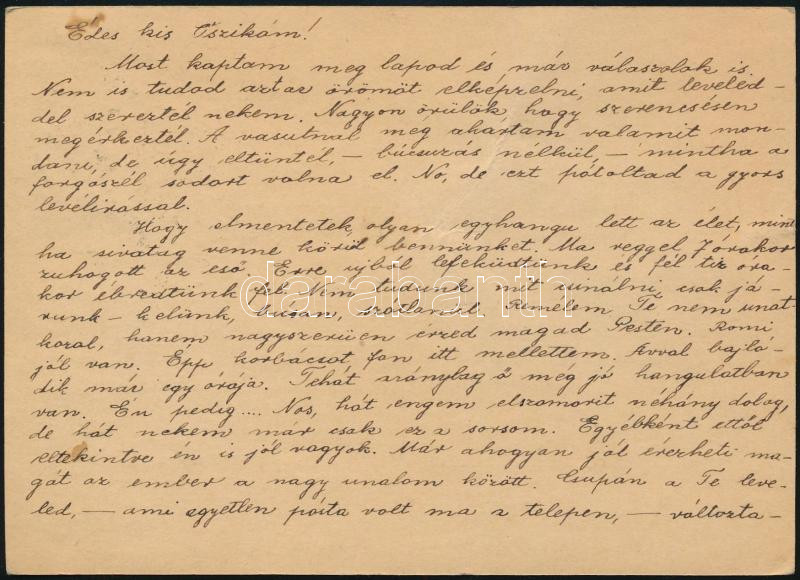 Édes kis Öszikám!
Most kaptam meg lapod és már válaszolok is.
Nem is tudod azt az örömöt elképzelni, amit leveled-
del szereztél nekem. Nagyon örülök, hogy szerencsésen
megérkeztél. A vasutnál meg akartam valamit mon-
dani, de úgy eltüntél, – búcsuzás nélkül, – mintha a
forgószél sodort volna el. Nó, de ezt pótoltad a gyors
levélirással.
Hogy elmentetek, olyan egyhangu lett az élet, mint
ha sivatag venne körül bennünket. Ma reggel 7 órakor
zuhogott az eső. Erre ujból lefeküdtünk és fél tiz óra-
kor ébredtünk fel. Nem tudunk mit csinálni, csak já-
runk – kelünk, búsan, szótlanul. Remélem Te nem unat-
kozol, hanem nagyszerüen érzed magad Pesten. Romi
jól van. Épp korbácsot fon itt mellettem. Avval bajló-
dik már egy órája. Tehát aránylag ő még jó hangulatban
van. Én pedig .... Nos, hát engem elszomorit néhány dolog,
de hát nekem már csak ez a sorsom. Egyébként ettől
eltekintve én is jól vagyok. Már ahogyan jól érezheti ma-
gát az ember a nagy unalom között. Csupán a Te leve-
led, – ami egyetlen pósta volt ma a telepen, – változta-
darabanth